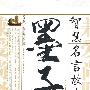 智慧名言故
墨子